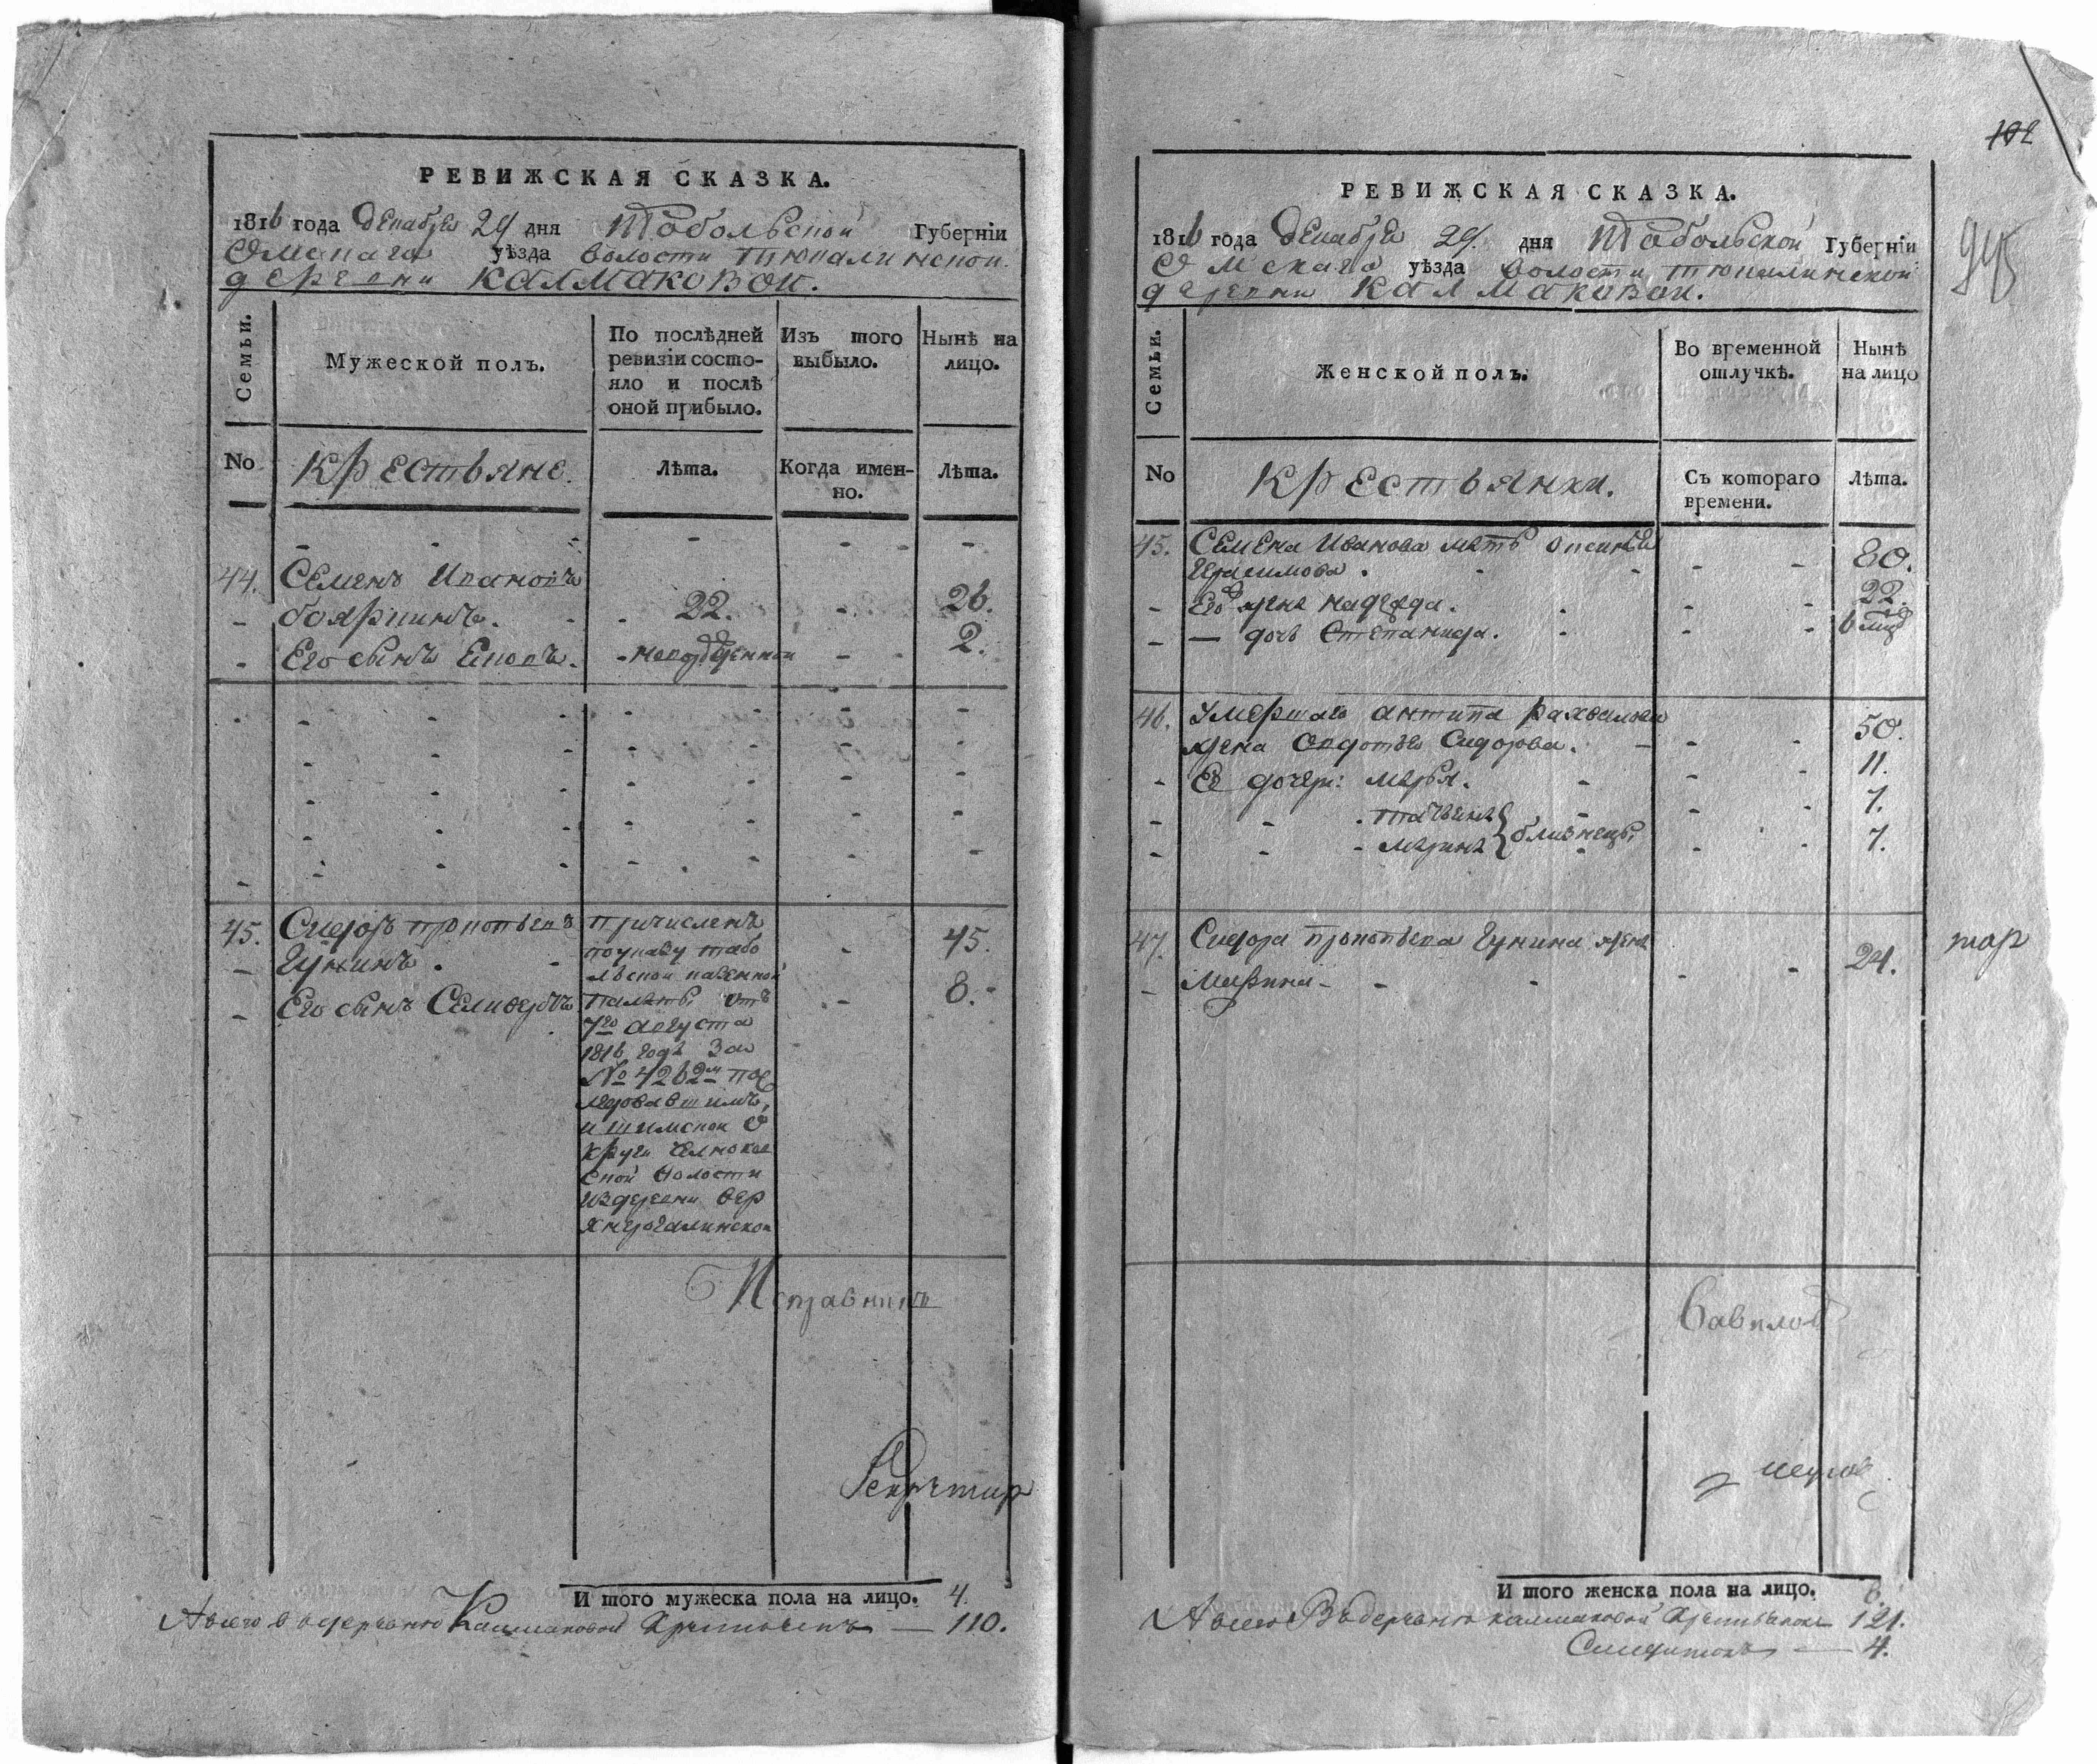 РЕВИЖСКАЯ СКАЗКА.
1816 года Декабря 29 дня Тобольской Губерніи
Омскаго уѣзда волости Тюкалинской
деревни Калмаковой.
Семьи.
Мужеской полъ.
По послѣдней ревизіи состо-
яло и послѣ
оной прибыло.
Изъ того
выбыло.
Нынѣ на
лицо.
No
Крестьяне.
Лѣта.
Когда имен-
но.
Лѣта.
44. Семенъ Ивановъ
бояркинъ. 22. 26.
Его сынъ новорожденной 2.
45. Сидоръ Прокопьевъ причисленъ 45.
Гункинъ. поуказу тобо
льской казенной
Его сынъ Селиверстъ палаты отъ 8.
7го августа
1816 года За
No 4262м пос
ледовавшимъ,
ишимской о
круги
ской волости
издеревни вер
Исправникъ
Секретарь
И того мужеска пола на лицо. 4.
А всего в деревне Калмаковой Крестьянъ — 110.
102
РЕВИЖСКАЯ СКАЗКА.
1816 года Декабря 29. дня Тобольской Губерніи
Омскаго уѣзда волости Тюкалинской
деревни Калмаковой.
Семьи.
Женской полъ.
Во временной
отлучкѣ.
Нынѣ
на лицо
No
Крестьянки.
Съ котораго
времени.
Лѣта.
45. Семена Иванова мать
Герасимова. 80.
Его жена надежда. 22.
— дочь Степанида. 6
46. Умершаго антипа
жена Авдотья Сидорова. 50.
Ее дочери: марья. 11.
татьяна 7.
марина близнецы 7.
47. Сидора прокопьева Гункина жена
Марина 24.
Вавилов
И того женска пола на лицо. 8.
А всего Въдеревне калмаковой Крестьянокъ 121.
4.